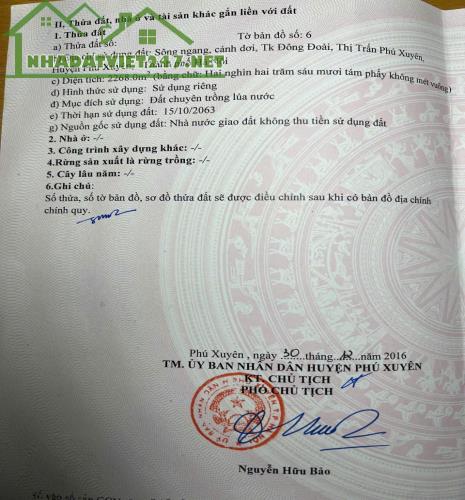 II, Thửa đất, nhà ở và tài sản khác gắn liền với đất
1. Thửa đất
a) Thửa đất số: Tờ bản đồ số: 6
NHADATVIET247.NET
sử dụng đất: Sông ngang, cánh dơi, Tk Đồng Đoài, Thị Trấn Phú Xuyên,
Huyện Phú
c) Diện tích: 2268.0m² (bằng chữ: Hai nghìn hai trăm sáu mươi tám phẩy không mét vuông)
d) Hình thức sử dụng: Sử dụng riêng
đ) Mục đích sử dụng: Đất chuyên trồng lúa nước
e) Thời hạn sử dụng đất: 15/10/2063
g) Nguồn gốc sử dụng đất: Nhà nước giao đất không thu tiền sử dụng đất
2. Nhà ở: -/-
3. Công trình xây dựng khác: -/-
4.Rừng sản xuất là rừng trồng: -/-
5. Cây lâu năm: -/-
6.Ghi chú:
Số thửa, số tờ bản đồ, sơ đồ thửa đất sẽ được điều chỉnh sau khi có bản đồ địa chính
chính quy.
Phú Xuyên, ngày 30 tháng 12 năm 2016
TM. ỦY BAN NHÂN DÂN HUYỆN PHÚ XUYÊN
KT. CHỦ TỊCH
PHÓ CHỦ TỊCH
Nguyễn Hữu Bảo